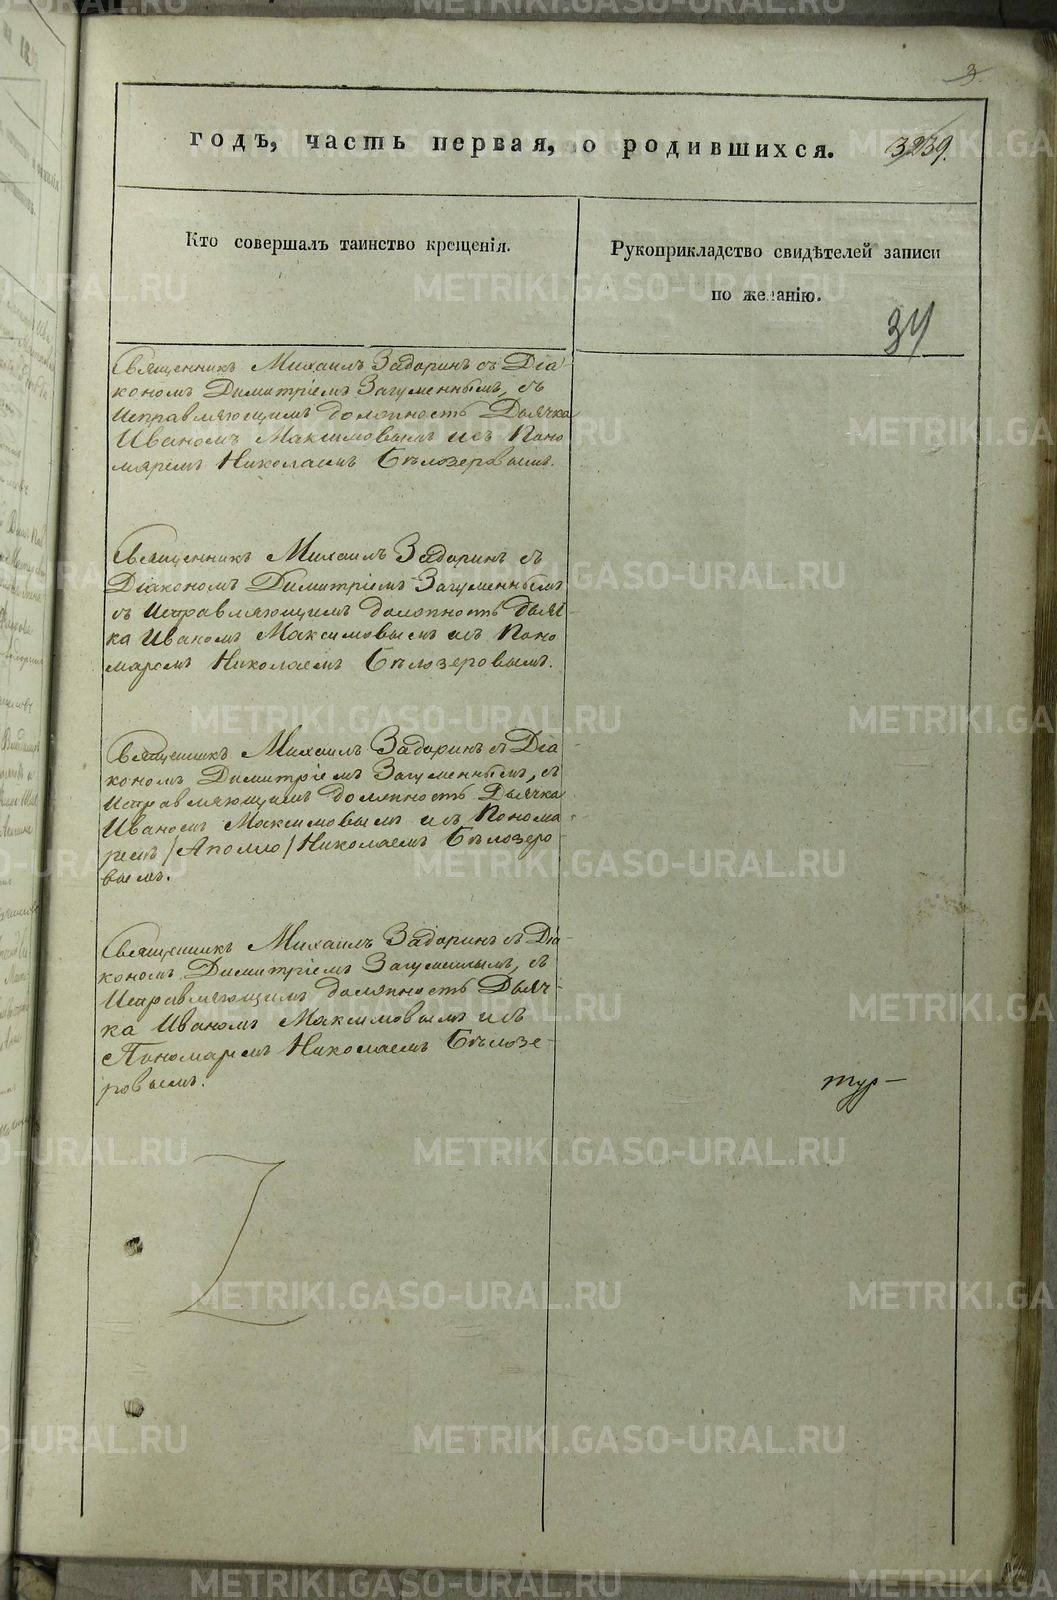 3
годъ, часть первая, о родившихся. 3239.
Кто совершалъ таинство крещенія.
Рукоприкладство свидѣтелей записи
по желанію.
34
Священникъ Михаилъ Задоринъ съ Діа
кономъ Димитріемъ Загуменнымъ, съ
Исправляющимъ должность Дьячка
Иваномъ Максимовымъ и съ Поно
маремъ Николаемъ Бѣлозеровымъ.
Священникъ Михаилъ Задоринъ съ
Діакономъ Димитріемъ Загуменнымъ
съ Исправляющимъ должность Дьяч-
ка Иваномъ Максимовымъ и съ Поно
маремъ Николаемъ Бѣлозеровымъ.
Священникъ Михаилъ Задоринъ съ Діа-
кономъ Димитріемъ Загуменнымъ, съ
Исправляющимъ должность Дьячка
Иваномъ Максимовымъ и съ Понома-
ремъ /Аполло/ Николаемъ Бѣлозеро-
вымъ.
Священникъ Михаилъ Задоринъ съ Діа-
кономъ Димитріемъ Загуменнымъ, съ
Исправляющимъ должность Дьяч-
ка Иваномъ Максимовымъ и съ
Пономаремъ Николаемъ Бѣлозе-
ровымъ.
тур-
METRIKI.GASO-URAL.RU